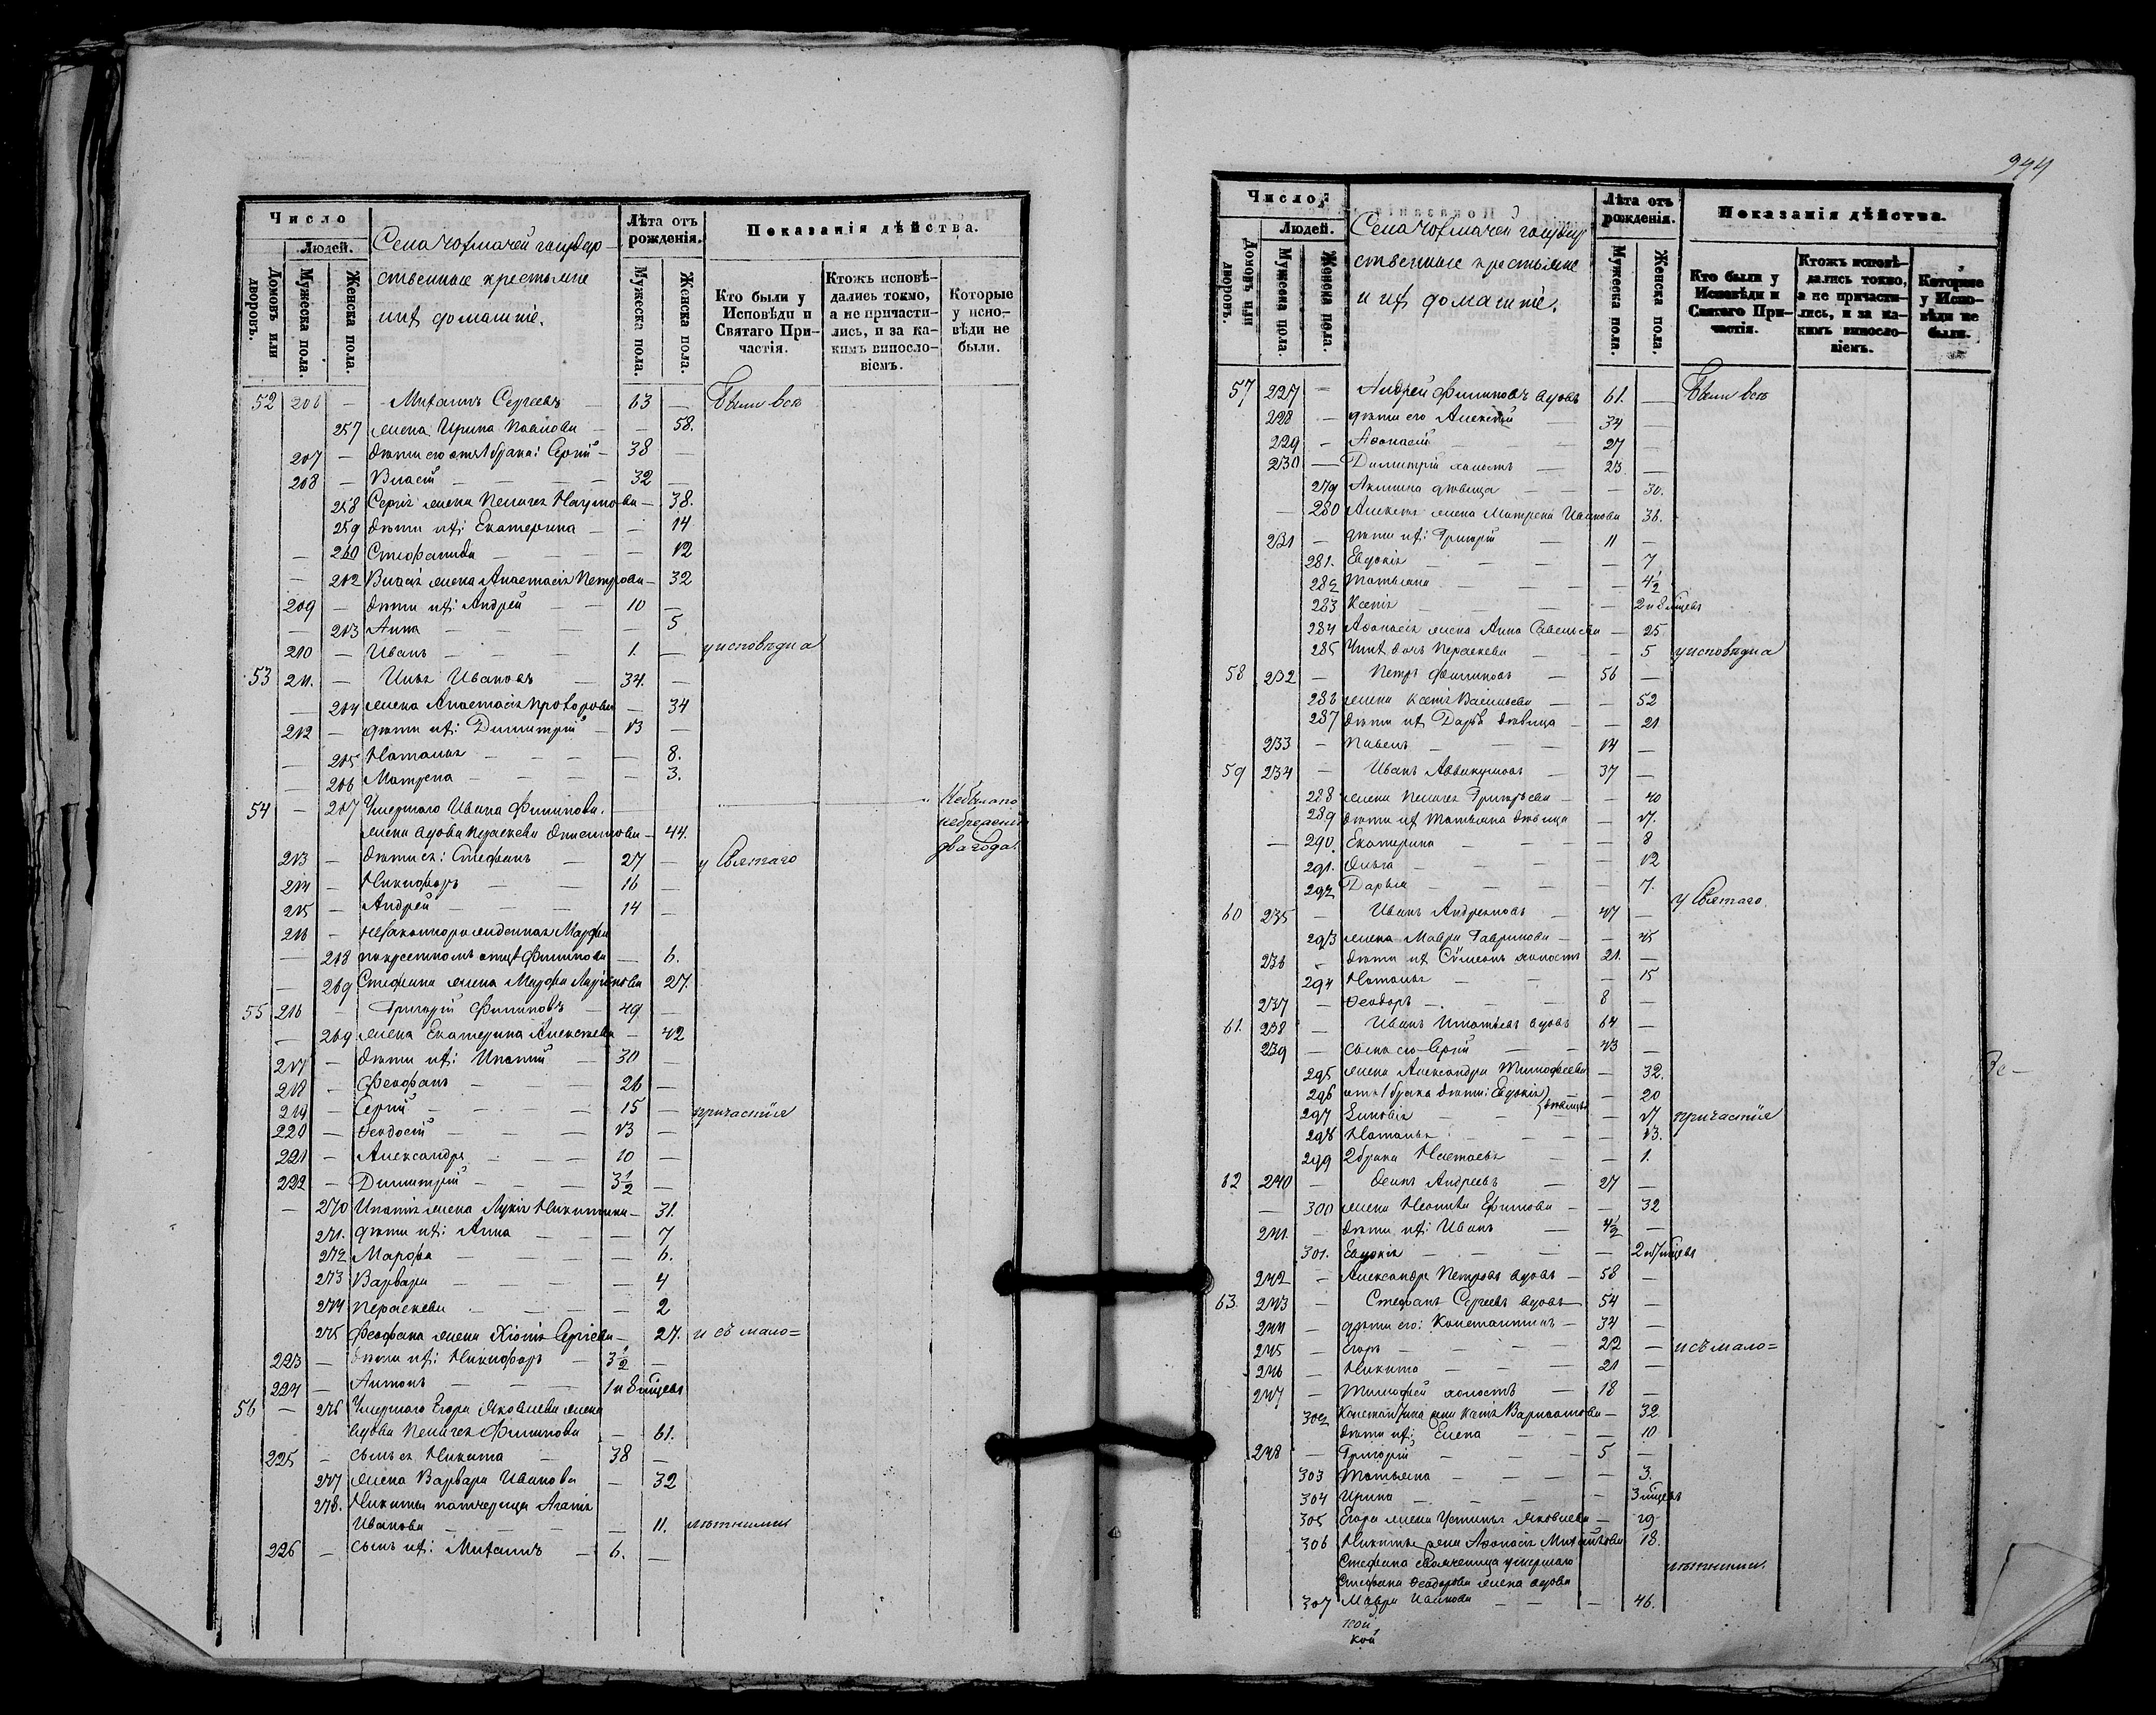 Число
Людей.
Домовъ или дворовъ.
Мужеска пола.
Женска пола.
Села государ-
ственные крестьяне
и ихъ домашніе.
Лѣта отъ рожденія.
Мужеска пола.
Женска пола.
Показанія дѣйства.
Кто были у Исповѣди и Святаго Причастія.
Ктожъ исповѣдались токмо, а не причастились, и за какимъ винословіемъ.
Которые у исповѣди не были.
52 206 — Михаилъ Сергѣевъ — 63 — Были всѣ
257 жена Ирина Павлова — — 58.
207 — дѣти его отъ 1 брака: Сергій — 38 —
208 — Власій — 32 —
258 Сергія жена Пелагея Наумова — 38.
259 дѣти ихъ: Екатерина — — 14
— 260 Стефанида — — 12
— 262 Власія жена Анастасія Петрова — 32
209 — дѣти ихъ: Андрей — 10 —
— 263 Анна — — 5
210 — Иванъ — 1. — у исповѣди и
53 211. — Илья Ивановъ — 34. —
— 264 жена Анастасія Прохорова — 34
212 — дѣти ихъ: Димитрій — 13 —
— 265 Наталья — — 8.
— 266 Матрена — — 3.
54 — 267 Умершаго Ивана Филипова
жена вдова Параскева — 44. Небыла по небреженію два года.
213 — дѣти ея: Стефанъ — 27 — у Святаго
214 — Никифоръ — 16 —
215 — Андрей — 14 —
216 — незаконнорожденная Марфа
— 268 по крестномъ отцѣ Филипова — 6.
— 269 Стефана жена Марфа — 27.
55 216 — Григорій Филиповъ — 49 —
— 269 жена Екатерина Алексѣева — 42
217 — дѣти ихъ: Ипатій — 30 —
218 — Феофанъ — 26 —
219 — Сергій — 15 — причастія
220 — Ѳеодосій — 13 —
221 — Александръ — 10 —
222 — Димитрій — 3½ —
— 270 Ипатія жена Лукія Никитина — 31.
271. дѣти ихъ: Анна — — 7
272 Марфа — — 6.
273 Варвара — — 4
274 Параскева — — 2
275 Феофана жена Хіонія Сергіева — 27. и съ мало=
223 — дѣти ихъ: Никифоръ — 3½ —
224 — Антонъ — 1 и 8 мцевъ
56 — 276 Умершаго Егора Яковлева жена
вдова Пелагея Филипова — 61.
225 — сынъ ея Никита — 38 —
277 жена Варвара Иванова — 32
278. Никиты падчерица Агапія
Иванова — — 11. лѣтними
226 — сынъ ихъ: Михаилъ — 6. —
944
Число
Людей.
Домовъ или дворовъ.
Мужеска пола.
Женска пола.
Села государ
ственные крестьяне
и ихъ домашніе.
Лѣта отъ рожденія.
Мужеска пола.
Женска пола.
Показанія дѣйства.
Кто были у Исповѣди и Святаго Причастія.
Ктожъ исповѣдались токмо, а не причастились, и за какимъ винословіемъ.
Которые у Исповѣди не были.
57 227 — Андрей Филиповъ вдовъ 61. — Были всѣ
228 — дѣти его Алексѣй — 34 —
229 — Афонасій — 27 —
230 — Димитрій холостъ — 23 —
279 Акилина дѣвица — — 30.
— 280 Алексѣя жена Матрена Иванова 36.
231 — дѣти ихъ: Григорій — 11 —
281. Евдокія — — 7
282 Татьяна — — 4½
283 Ксенія — — 2 и 8 мцевъ
284 Афонасія жена Анна Савельева — 25
285 Ихъ дочь Параскева — — 5 у исповѣди и
58 232 — Петръ Филиповъ — 56 —
286 жена Ксенія Васильева — — 52
287 дѣти ихъ Дарья дѣвица — — 21
233 — Павелъ — 14 —
59 234 — Иванъ Аввакумовъ — 37 —
288 жена Пелагея Григорьева — — 40
289 дѣти ихъ Татьяна дѣвица — 17.
— 290. Екатерина — — 8
291. Ольга — — 12
292 Дарья — — 7. у Святаго
60 235 — Иванъ Андреяновъ — 47 —
293 жена Мавра Гаврилова — — 45
236 — дѣти ихъ Сѵмеонъ холостъ 21. —
294 Наталья — — 15
237 — Ѳеодоръ — 8 —
61. 238 — Иванъ Игнатьевъ вдовъ 64 —
239 — сынъ его Сергій — 43 —
295 жена Александра Тимофеева — 32.
296 отъ 1 брака дѣти: Евдокія — 20
297 Зиновія } дѣвицы — 17 причастія
298 Наталья — — 13.
299 2 брака Настасья — — 1.
62 240 — Осипъ Андреевъ — 27 —
— 300 жена Неонила Ефимова — — 32
241. — дѣти ихъ: Иванъ — 4½ —
301. Евдокія — — 2 и 7 мцевъ
242 — Александръ Петровъ вдовъ — 58 —
63. 243 — Стефанъ Сергѣевъ вдовъ — 54 —
244 — дѣти его: Константинъ — 34 —
245 — Егоръ — 22 — и съ мало=
246 — Никита — 21 —
247 — Тимофей холостъ — 18 —
302 Константина жена Варлаамова — 32
дѣти ихъ: Елена — — 10
248 — Григорій — 5 —
303 Татьяна — — 3.
304 Ирина — — 3 мцевъ
305 Егора жена Устинья Яковлева — 19
306 Никиты жена Афонасія Михайлова 18.
Стефана свояченица умершаго лѣтними.
Стефана Ѳеодорова жена вдова
307 Мавра Иванова — — 46.
кой